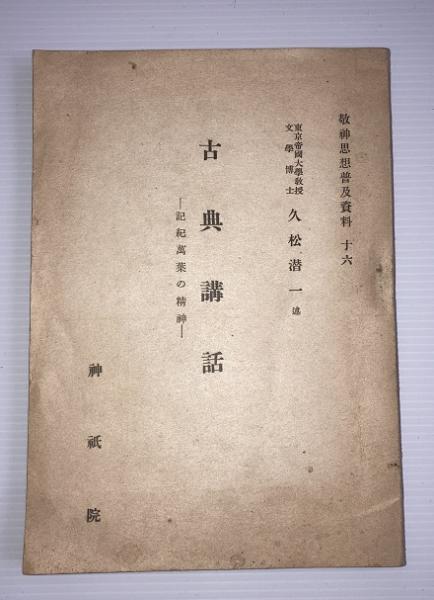 敬神思想普及資料 十六
東京帝國大學敎授
文學博士
久松潜一述
古典講話
―記紀萬葉の精神―
神祇院